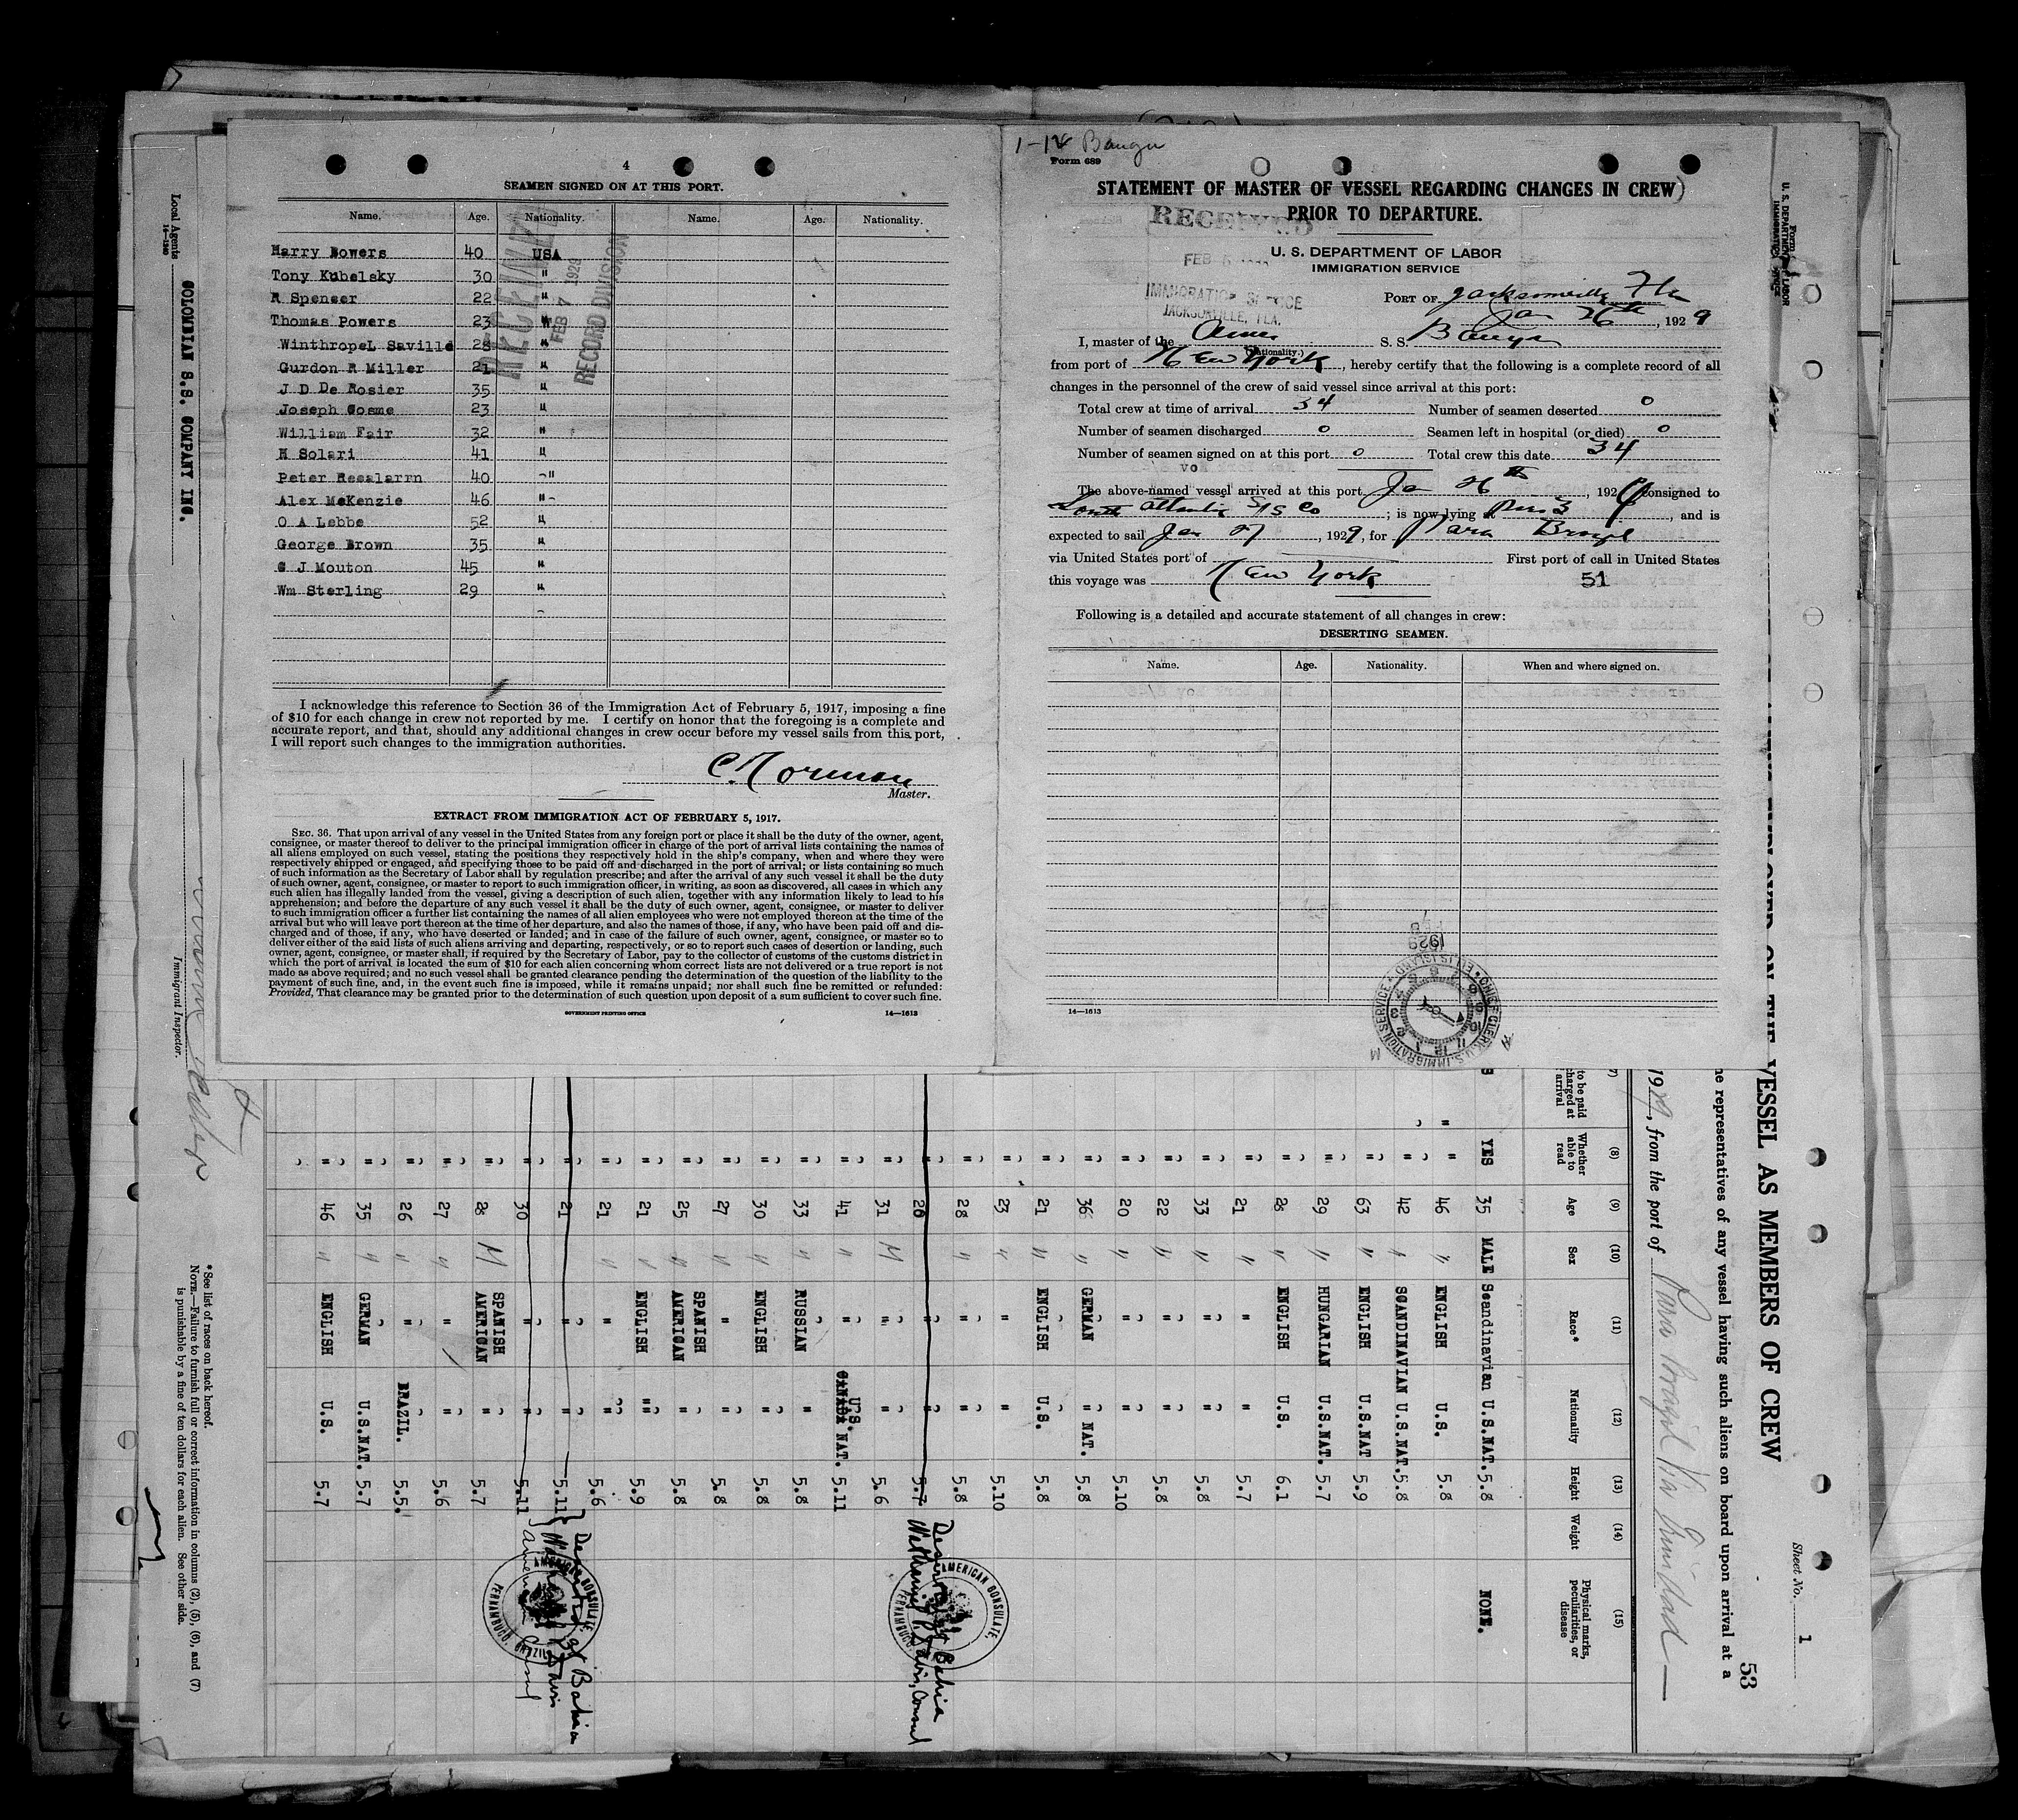 4
SEAMEN SIGNED ON AT THIS PORT.
Name. Age. Nationality. Name. Age. Nationality.
Harry Bowers 40 USA
Tony Kubelsky 30 "
R Spencer 22 "
Thomas Powers 23 "
WinthropeL Saville 28 "
Gurdon R Miller 21 "
J D De Rosier 35 "
Joseph Cosme 23 "
William Fair 32 "
M Solari 41 "
Peter 40 "
Alex McKenzie 46 "
O A Lebbe 52 "
George Brown 35 "
C J Mouton 45 "
Wm Sterling 29 "
RECEIVED
FEB 7 1929
RECORD DIVISION
I acknowledge this reference to Section 36 of the Immigration Act of February 5, 1917, imposing a fine
of $10 for each change in crew not reported by me. I certify on honor that the foregoing is a complete and
accurate report, and that, should any additional changes in crew occur before my vessel sails from this port,
I will report such changes to the immigration authorities.
Master.
EXTRACT FROM IMMIGRATION ACT OF FEBRUARY 5, 1917.
SEC. 36. That upon arrival of any vessel in the United States from any foreign port or place it shall be the duty of the owner, agent,
consignee, or master thereof to deliver to the principal immigration officer in charge of the port of arrival lists containing the names of
all aliens employed on such vessel, stating the positions they respectively hold in the ship's company, when and where they were
respectively shipped or engaged, and specifying those to be paid off and discharged in the port of arrival; or lists containing so much
of such information as the Secretary of Labor shall by regulation prescribe; and after the arrival of any such vessel it shall be the duty
of such owner, agent, consignee, or master to report to such immigration officer, in writing, as soon as discovered, all cases in which any
such alien has illegally landed from the vessel, giving a description of such alien, together with any information likely to lead to his
apprehension; and before the departure of any such vessel it shall be the duty of such owner, agent, consignee, or master to deliver
to such immigration officer a further list containing the names of all alien employees who were not employed thereon at the time of the
arrival but who will leave port thereon at the time of her departure, and also the names of those, if any, who have been paid off and dis-
charged and of those, if any, who have deserted or landed; and in case of the failure of such owner, agent, consignee, or master so to
deliver either of the said lists of such aliens arriving and departing, respectively, or so to report such cases of desertion or landing, such
owner, agent, consignee, or master shall, if required by the Secretary of Labor, pay to the collector of customs of the customs district in
which the port of arrival is located the sum of $10 for each alien concerning whom correct lists are not delivered or a true report is not
made as above required; and no such vessel shall be granted clearance pending the determination of the question of the liability to the
payment of such fine, and, in the event such fine is imposed, while it remains unpaid; nor shall such fine be remitted or refunded:
Provided, That clearance may be granted prior to the determination of such question upon deposit of a sum sufficient to cover such fine.
GOVERNMENT PRINTING OFFICE 14—1613
Form 689
STATEMENT OF MASTER OF VESSEL REGARDING CHANGES IN CREW
PRIOR TO DEPARTURE.
RECEIVED
U. S. DEPARTMENT OF LABOR
IMMIGRATION SERVICE
IMMIGRATION SERVICE
JACKSONVILLE, FLA.
PORT OF Jacksonville Fla
Jan 26th, 1929
I, master of the Amer. S. S. Bangu
(Nationality.)
from port of New York, hereby certify that the following is a complete record of all
changes in the personnel of the crew of said vessel since arrival at this port:
Total crew at time of arrival 34 Number of seamen deserted 0
Number of seamen discharged 0 Seamen left in hospital (or died) 0
Number of seamen signed on at this port 0 Total crew this date 34
The above-named vessel arrived at this port Ja 26th, 1929, consigned to
South Atlantic S/S Co; is now lying at Pier 3, and is
expected to sail Jan 27, 1929, for Para Brazil
via United States port of First port of call in United States
this voyage was New York 51
Following is a detailed and accurate statement of all changes in crew:
DESERTING SEAMEN.
Name. Age. Nationality. When and where signed on.
CHIEF CLERK, U.S. IMMIGRATION SERVICE ELLIS ISLAND
1929
14—1613
Form
U. S. DEPARTMENT OF LABOR
Sheet No. 1
53
VESSEL AS MEMBERS OF CREW
representatives of any vessel having such aliens on board upon arrival at a
1929, from the port of Para Brazil Via Trinidad
(8) (9) (10) (11) (12) (13) (14) (15)
to be paid
at
arrival
Whether able to read Age Sex Race* Nationality Height Weight Physical marks, peculiarities, or disease
YES 35 MALE Scandinavian U.S.NAT. 5.8 NONE.
" 46 " ENGLISH U.S. 5.8
" 42 " SCANDINAVIAN U.S.NAT. 5.8
" 63 " ENGLISH U.S.NAT 5.9
" 29 " HUNGARIAN U.S.NAT. 5.7
" 28 " ENGLISH U.S. 6.1
" 21 " " " 5.7
" 33 " " " 5.8
" 22 " " " 5.8
" 20 " " " 5.10
" 36 " GERMAN " NAT. 5.8
" 21 " ENGLISH U.S. 5.8
" 23 " " " 5.10
" 28 " " " 5.8
" 20 " " 5.7 Deserted at Bahia
Nathaniel P. Davis, Consul
AMERICAN CONSULATE, PERNAMBUCO
" 31 M " " 5.6
" 41 " " U.S. CANADA NAT. 5.11
" 33 " RUSSIAN " 5.8
" 30 " ENGLISH " 5.8
" 27 " " " 5.8
" 25 " SPANISH AMERICAN " 5.8
" 21 " ENGLISH " 5.9
" 21 " " " 5.6
" 21 " " 5.11 Deserted at Bahia
" 30 " " 5.11
AMERICAN CONSULATE, PERNAMBUCO, BRAZIL
" 28 M SPANISH AMERICAN " 5.7
" 27 " " " 5.6
" 26 " " BRAZIL. 5.5.
" 35 " GERMAN U.S.NAT. 5.7
" 46 " ENGLISH U.S. 5.7
* See list of races on back hereof.
NOTE.—Failure to furnish full or correct information in columns (2), (5), (6), and (7)
is punishable by a fine of ten dollars for each alien. See other side.
Local Agents COLOMBIAN S.S. COMPANY INC.
Immigrant Inspector.